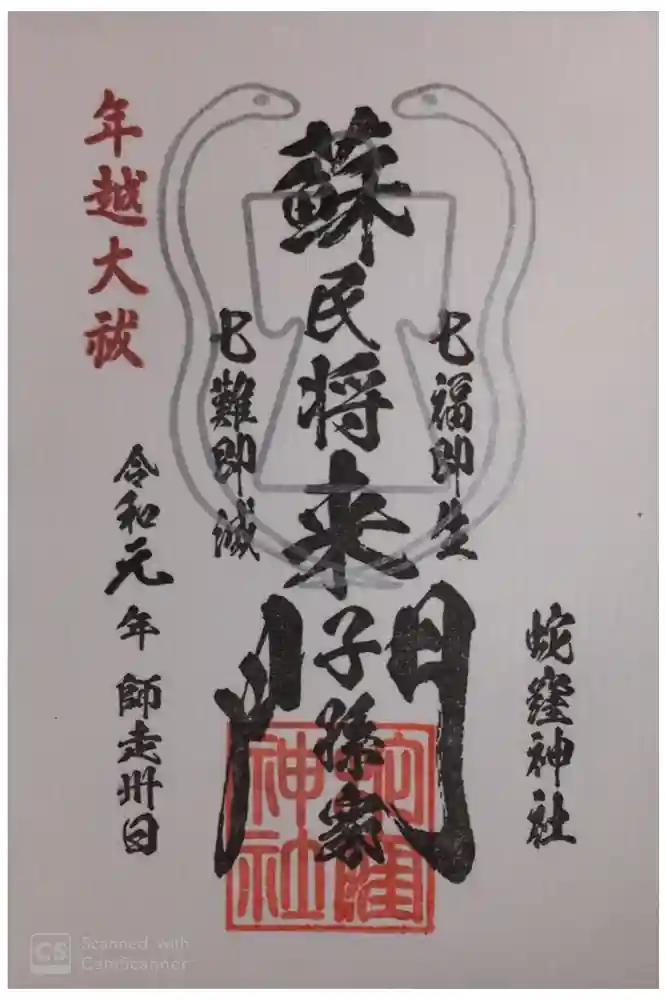 蛇窪神社
七福即生
蘇民将来子孫家門
七難即滅
年越大祓
令和元年師走卅日
蛇窪
神社
CS Scanned with
CamScanner